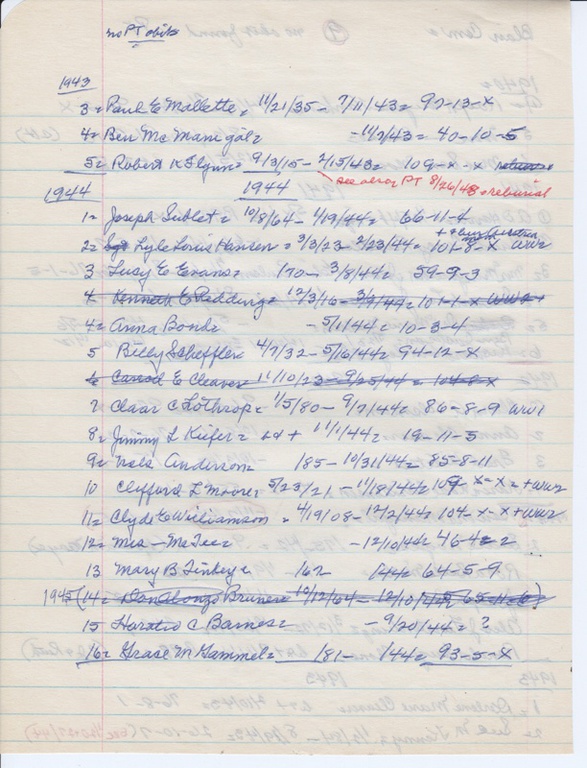 no PT obits
1943
3= Paul E Mallette= 11/21/35- 7/11/43= 97-13-X
4= Ben McManigal= -11/2/43= 40-10-5
5= Robert K Flynn= 9/3/15- 2/15/43= 109-X-X
see also PT 8/26/48=reburial
1944 1944
1= Joseph Sublet= 10/8/64- 1/19/44= 66-11-4
2= Lyle Louis Hansen= 3/3/23- 2/23/44= 101-8-X WW2
3 Lucy E Evans= 170- 3/8/44= 59-9-3
4 Kenneth E Redding= 12/3/16- 3/9/44= 101-1-X WW2+
4= Anna Bond= -5/1/44= 10-3-4
5 Billy Scheffler 4/7/32- 5/16/44= 94-12-X
6 Carrol E Cleaver 11/10/23- 9/25/44= 104-8-X
7 Claar C Lothrop= 1/5/80- 9/7/44= 86-8-9 WW1
8= Jimmy L Kiefer= sd+ 11/1/44= 19-11-5
9= Nels Anderson= 185- 10/31/44= 85-8-11
10 Clifford L Moore= 5/23/21- 11/18/44= 109-X-X=+WW2
11= Clyde E Williamson= 4/19/08- 12/2/44= 104-X-X+WW2
12= Mrs - McTee= -12/10/44= 46-4-2
13 Mary B Finkeye 162 144= 64-5-9
1945 (14= Dan Alonzo Bruner= 10/12/64- 12/10/45= 65-11-6)
15 Horatio C Barnes= -9/20/44= ?
16= Grace M Gammel= 181- 144= 93-5-X